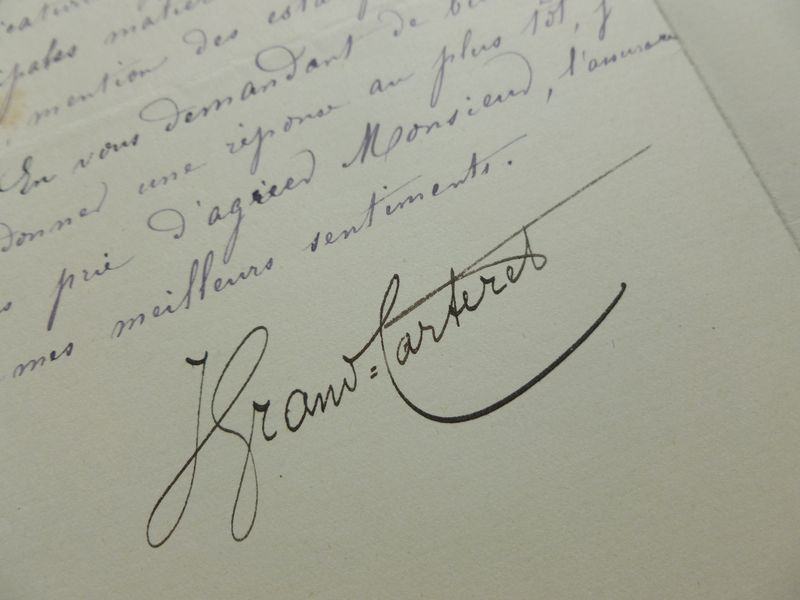 icatur
ipales matiè
mention des esta
En vous demandant de bi
donner une réponse au plus tôt, j
prie d'agréer Monsieur, l'assurance
mes meilleurs sentiments.
JGrand=Carteret